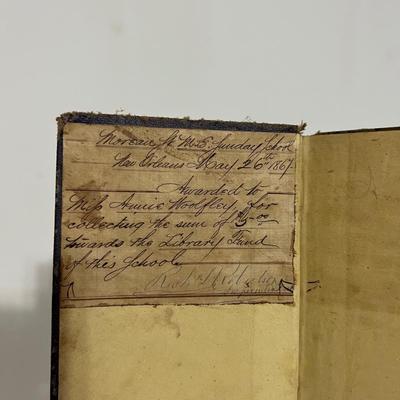 Moreau St M.E. Sunday School
New Orleans May 26th 1867
Awarded to
Miss Annie Woolfley for
collecting the sum of
towards the Library Fund
of this School